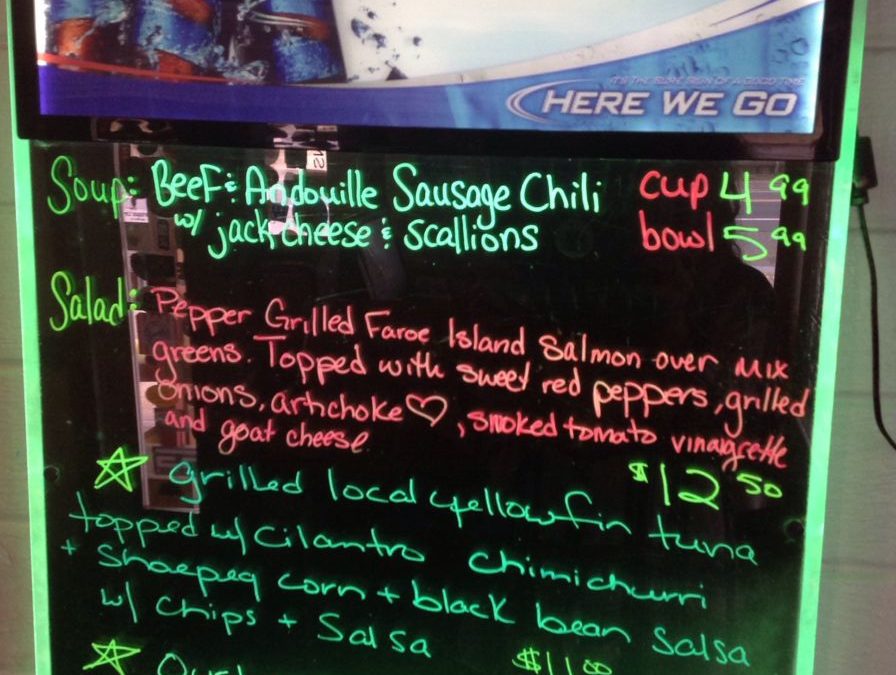 IT'S THE SURE SIGN OF A GOOD TIME
HERE WE GO
Soup: Beef & Andouille Sausage Chili cup 4 99
w/ jack cheese & scallions bowl 5 99
Salad: Pepper Grilled Faroe Island Salmon over mix
greens. Topped with sweet red peppers, grilled
onions, artichoke ♡, smoked tomato vinaigrette
and goat cheese
$12 50
☆ grilled local yellowfin tuna
topped w/ cilantro chimichurri
+ Shoepeg corn + black bean salsa
w/ chips + Salsa
$11 00
☆